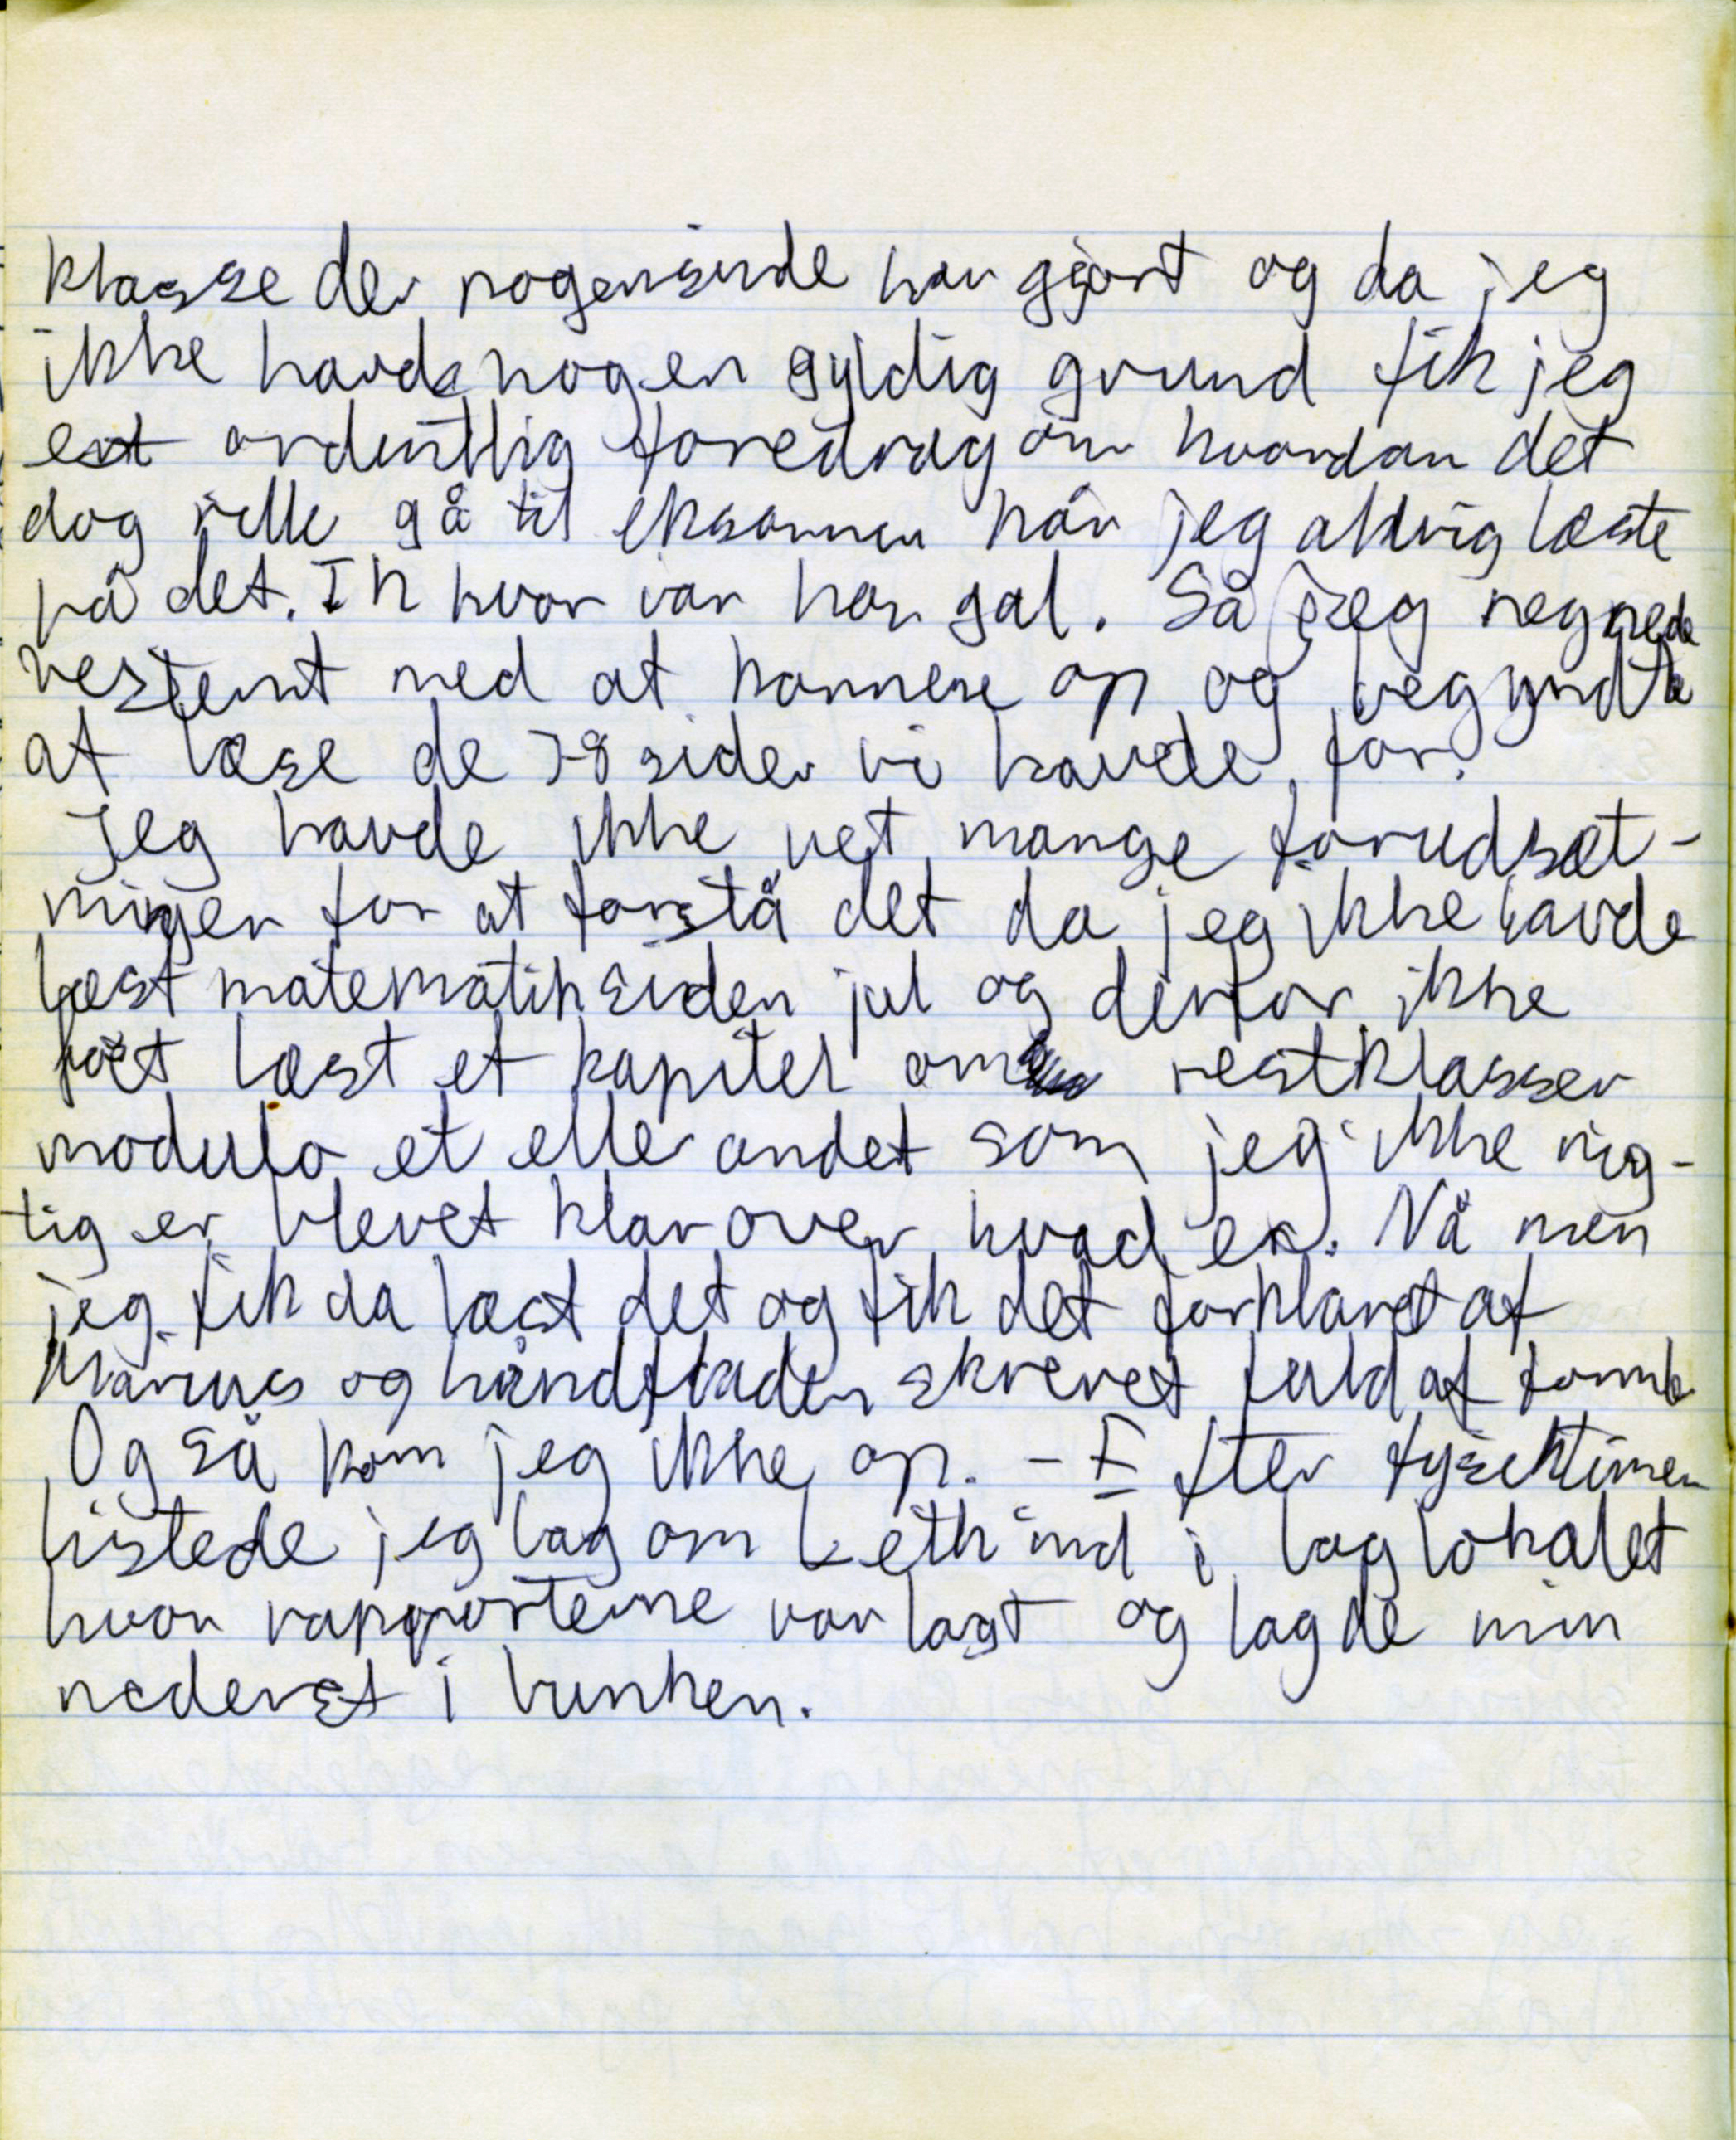 klasse der nogensinde har gjort og da jeg
ikke havde nogen gyldig grund fik jeg
et ordentlig foredrag om hvordan det
dog ville gå til eksamen når jeg aldrig læste
på det. Ih hvor var han gal. Så jeg regnede
bestemt med at komme op og begyndte
at læse de 7-8 sider vi havde for.
Jeg havde ikke ret mange forudsæt-
ninger for at forstå det da jeg ikke havde
læst matematik siden jul og derfor ikke
fået læst et kapitel om restklasser
modulo et eller andet som jeg ikke rig-
tig er blevet klar over hvad er. Nå men
jeg fik da læst det og fik det forklaret af
Marius og håndfladen skrevet fuld af
Og så kom jeg ikke op. - Efter fysiktimen
listede jeg bag om Keth ind i lokalet
hvor rapporterne var lagt og lagde min
nederst i bunken.